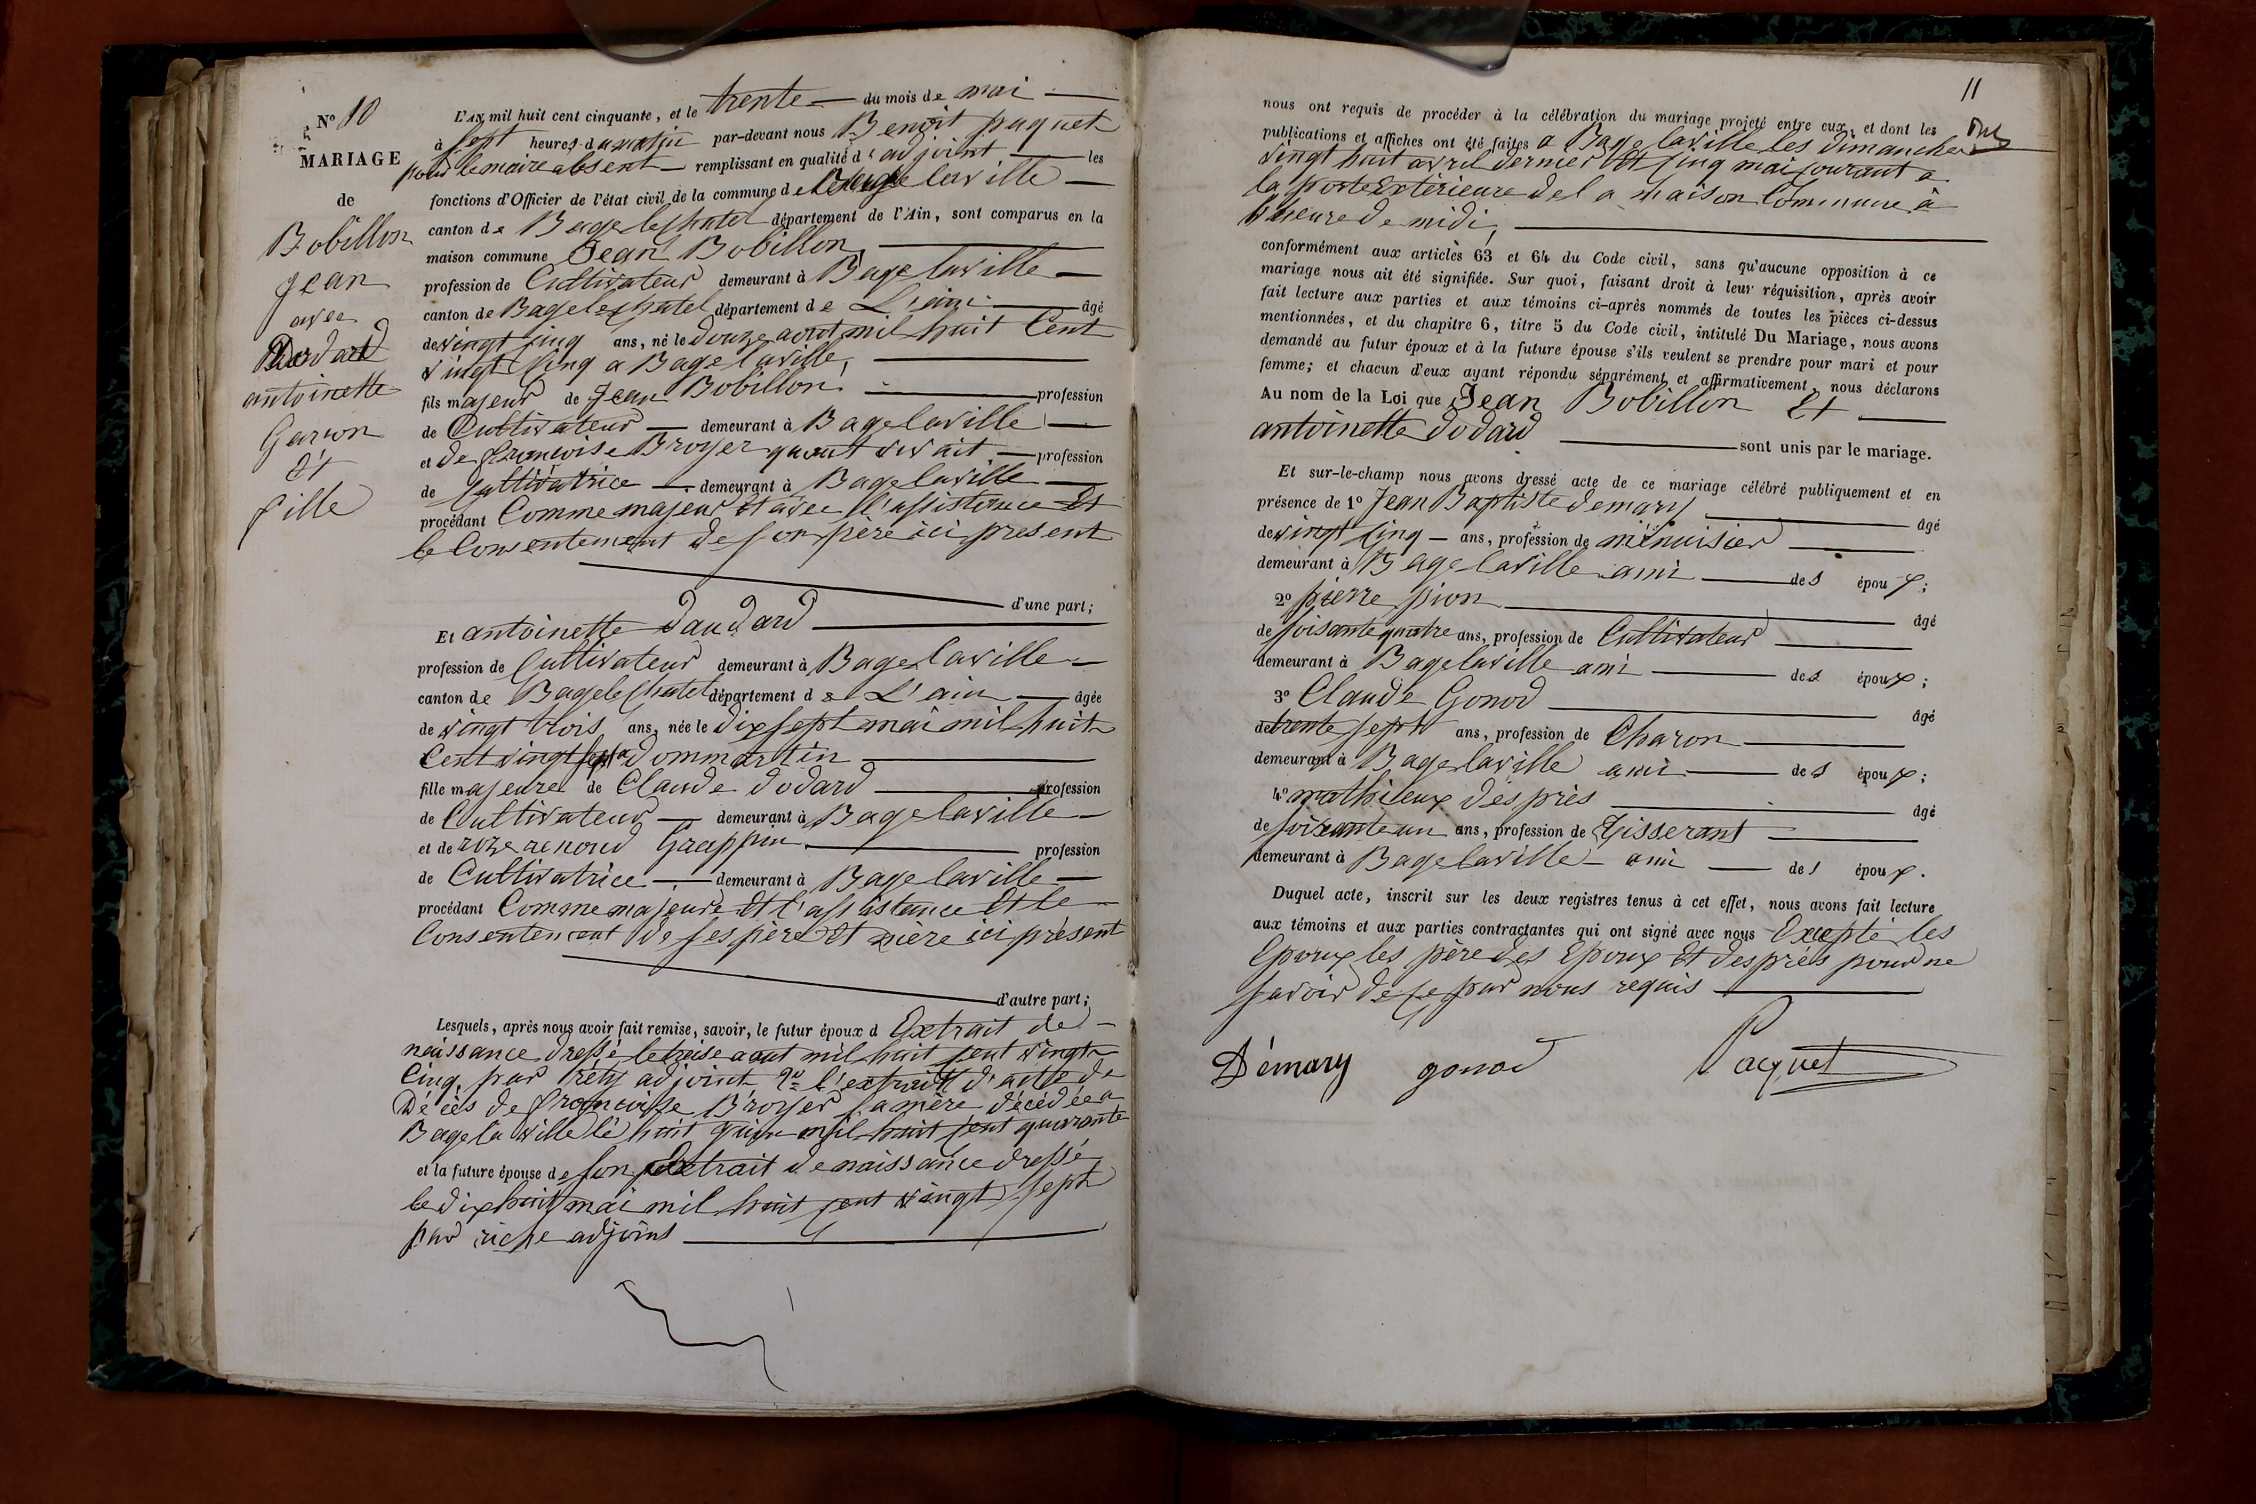 N° 10
MARIAGE
de
Bobillon
jean
avec
Dodard
antoinette
Garson
Et
fille
L'An mil huit cent cinquante, et le trente du mois de mai
à sept heures du matin par-devant nous Benoit paquet
pour le maire absent remplissant en qualité d'adjoint les
fonctions d'Officier de l'état civil de la commune de Bage laville
canton de Bage le chatel département de l'Ain, sont comparus en la
maison commune Jean Bobillon
profession de Cultivateur demeurant à Bage laville
canton de Bage le chatel département de L'ain âgé
de vingt cinq ans, né le douze aout mil huit Cent
vingt cinq a Bage laville,
fils majeur de Jean Bobillon profession
de Cultivateur demeurant à Bage laville
et de francoise Broyer quant vivait profession
de Cultivatrice demeurant à Bage laville
procédant Comme majeur Et avec l'assistance Et
le Consentement de son père ici present
d'une part;
Et antoinette daudard
profession de Cultivateur demeurant à Bage laville
canton de Bage le chatel département de L'ain âgée
de vingt trois ans, née le dix sept mai mil huit
Cent vingt sept a dommartin
fille majeure de Claude dodard profession
de Cultivateur demeurant à Bage laville
et de roze renoud Grappin profession
de Cultivatrice demeurant à Bage laville
procédant Comme majeure Et l'assistance Et le
Consentement de ses père Et mère ici présent
d'autre part;
Lesquels, après nous avoir fait remise, savoir, le futur époux d Extrait de
naissance dressé le treise aout mil huit cent vingt
Cinq, par adjoint 2° l'extrait d'acte de
Décès de francoisse Broyer sa mère décédée a
Bage la ville le huit mil huit cent quarante
et la future épouse de son Extrait de naissance dressé
le dix huit mai mil huit cent vingt sept
par riche adjoint
11
nous ont requis de procéder à la célébration du mariage projeté entre eux, et dont les
publications et affiches ont été faites a Bage laville les dimanches
vingt huit avril dernier Et cinq mai courant a
la porte Extérieure de la maison Commune à
l'heure de midi,
conformément aux articles 63 et 64 du Code civil, sans qu'aucune opposition à ce
mariage nous ait été signifiée. Sur quoi, faisant droit à leur réquisition, après avoir
fait lecture aux parties et aux témoins ci-après nommés de toutes les pièces ci-dessus
mentionnées, et du chapitre 6, titre 5 du Code civil, intitulé Du Mariage, nous avons
demandé au futur époux et à la future épouse s'ils veulent se prendre pour mari et pour
femme; et chacun d'eux ayant répondu séparément et affirmativement, nous déclarons
Au nom de la Loi que Jean Bobillon Et
antoinette dodard sont unis par le mariage.
Et sur-le-champ nous avons dressé acte de ce mariage célébré publiquement et en
présence de 1° Jean Baptiste demary âgé
de vingt cinq ans, profession de ménuisier
demeurant à Bage laville ami des époux;
2° pierre pion âgé
de soisante quatre ans, profession de Cultivateur
demeurant à Bage laville ami des époux;
3° Claude Gonod âgé
de trente sept ans, profession de Charon
demeurant à Bage laville ami des époux;
4° mathieux desprès âgé
de soixante un ans, profession de Tisserant
demeurant à Bage laville ami des époux.
Duquel acte, inscrit sur les deux registres tenus à cet effet, nous avons fait lecture
aux témoins et aux parties contractantes qui ont signé avec nous Excepté les
Epoux les père des Epoux Et desprès pour ne
savoir de ce par nous requis
Démary gonod Pacquet